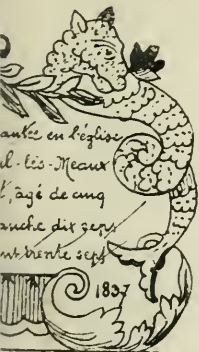 antés en l'église
il-lès-Meaux
, âgé de cinq
anche dix sept
nt trente sept
1837